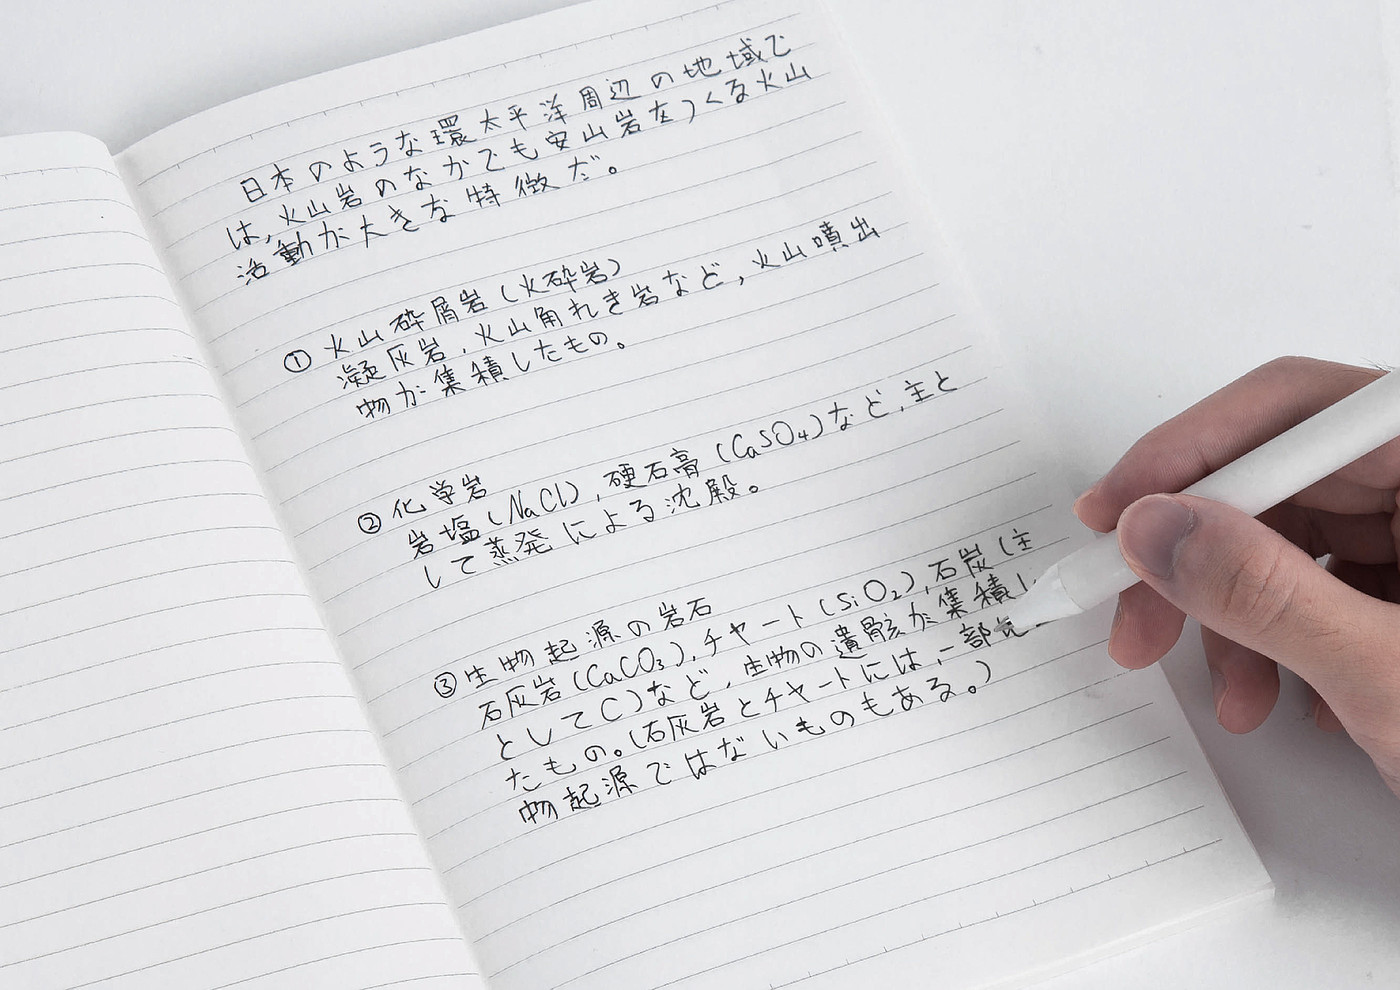 日本のような環太平洋周辺の地域で
は,火山岩のなかでも安山岩をつくる火山
活動が大きな特徴だ。
① 火山砕屑岩(火砕岩)
凝灰岩,火山角れき岩など,火山噴出
物が集積したもの。
② 化学岩
岩塩(NaCl),硬石膏(CaSO₄)など,主と
して蒸発による沈殿。
③ 生物起源の岩石
石灰岩(CaCO₃),チャート(SiO₂),石炭(主
としてC)など,生物の遺骸が集積し
たもの。(石灰岩とチャートには,一部
物起源ではないものもある。)